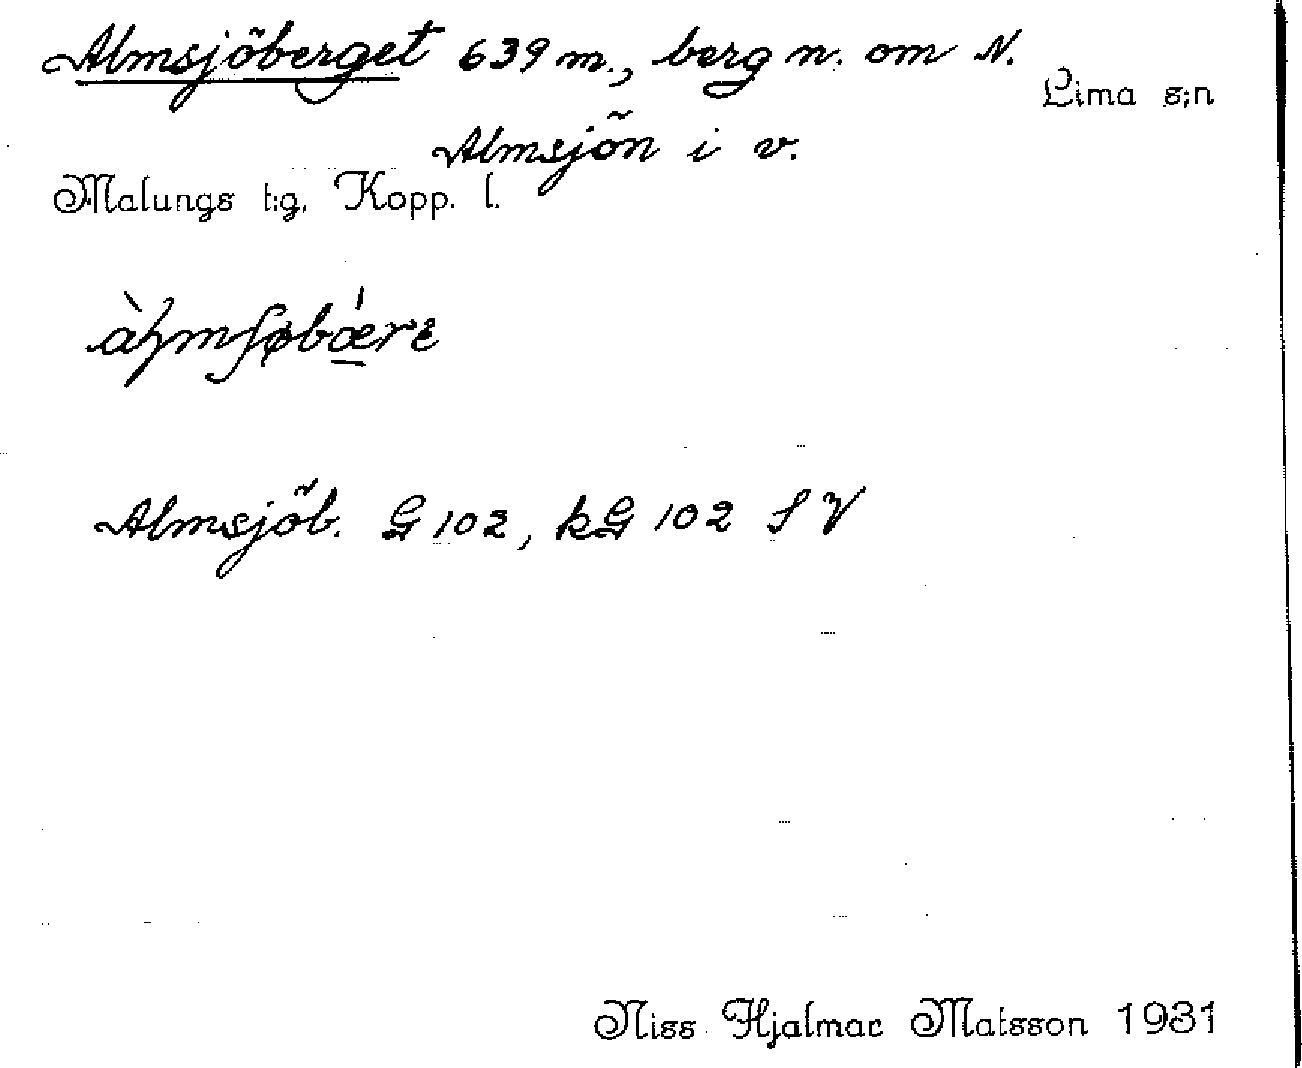 Almsjöberget 639 m., berg n. om N.
Lima s:n
Almsjön i v.
Malungs t:g. Kopp. l.
Almsjöb. G 102, kG 102 SV
Niss Hjalmar Matsson 1931